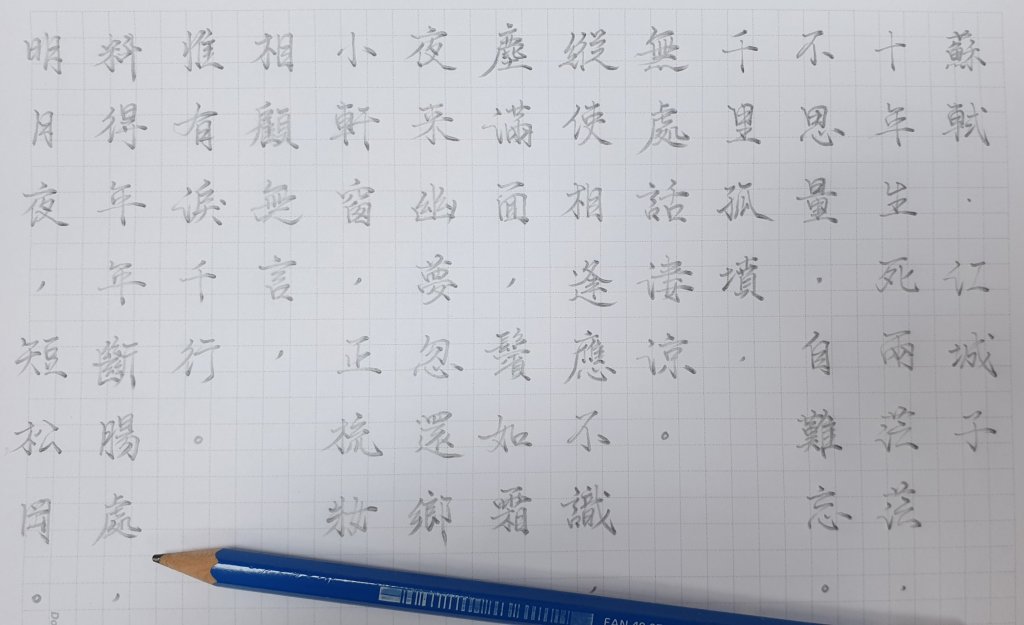 蘇軾·江城子
十年生死兩茫茫，
不思量，自難忘。
千里孤墳，
無處話淒涼。
縱使相逢應不識，
塵滿面，鬢如霜
夜来幽夢忽還鄉
小軒窗，正梳妝
相顧無言，
惟有淚千行。
料得年年斷腸處，
明月夜，短松岡。
EAN 40